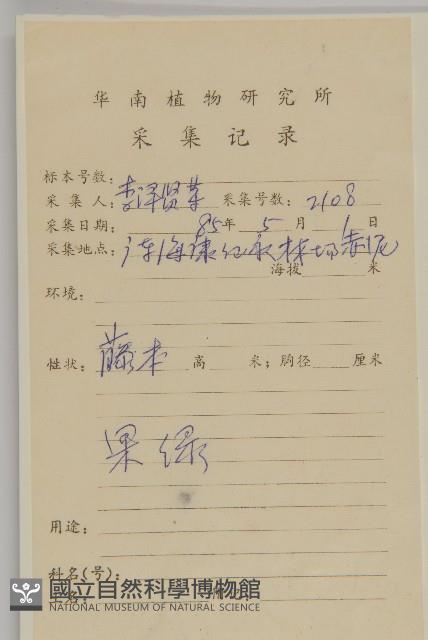 华南植物研究所
采集记录
标本号数:
采集人: 李泽贤等 采集号数: 2108
采集日期: 85年5月1日
采集地点: 广东海康红衣林场赤坭
海拔 米
环境:
性状: 藤本 高 米; 胸径 厘米
果绿
用途:
科名(号):
國立自然科學博物館
NATIONAL MUSEUM OF NATURAL SCIENCE